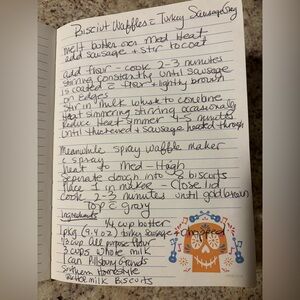 Biscuit Waffles c Turkey Sausage Gravy
melt butter over med Heat
add sausage + stir to coat
add flour - cook 2-3 minutes
stirring constantly until sausage
is coated c flour + lightly brown
on edges
Stir in milk whisk to combine
Heat simmering stirring occasionally
Reduce Heat simmer 4-5 minutes
until thickened + sausage heated through
Meanwhile spray waffle maker
c spray
Heat to Med - High
Separate dough into 8 biscuits
Place 1 in maker - Close lid
Cook 2-3 minutes until gold brown
Top c gravy
Ingredients
1/4 cup butter
1 pkg (9.6 oz) turkey Sausage - Chopped
1/3 cup All purpose flour
3 cups whole milk
1 can Pillsbury Grands
Southern Homestyle
Buttermilk Biscuits